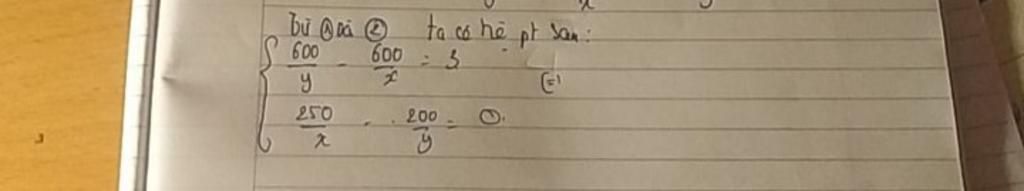 Từ ① và ② ta có hệ pt sau:
600/y - 600/x = 3
(=)
250/x - 200/y = 0.